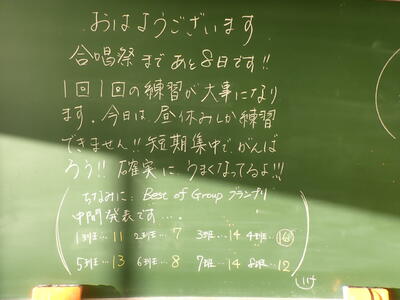 おはようございます
合唱祭まであと8日です!!
1回1回の練習が大事になり
ます。今日は昼休みしか練習
できません!! 短期集中でがんば
ろう!! 確実にうまくなってるよ!!!
ちなみに: Best of Group グランプリ
中間発表です…
1班…11 2班…7 3班…14 4班…16
5班…13 6班…8 7班…14 8班…12